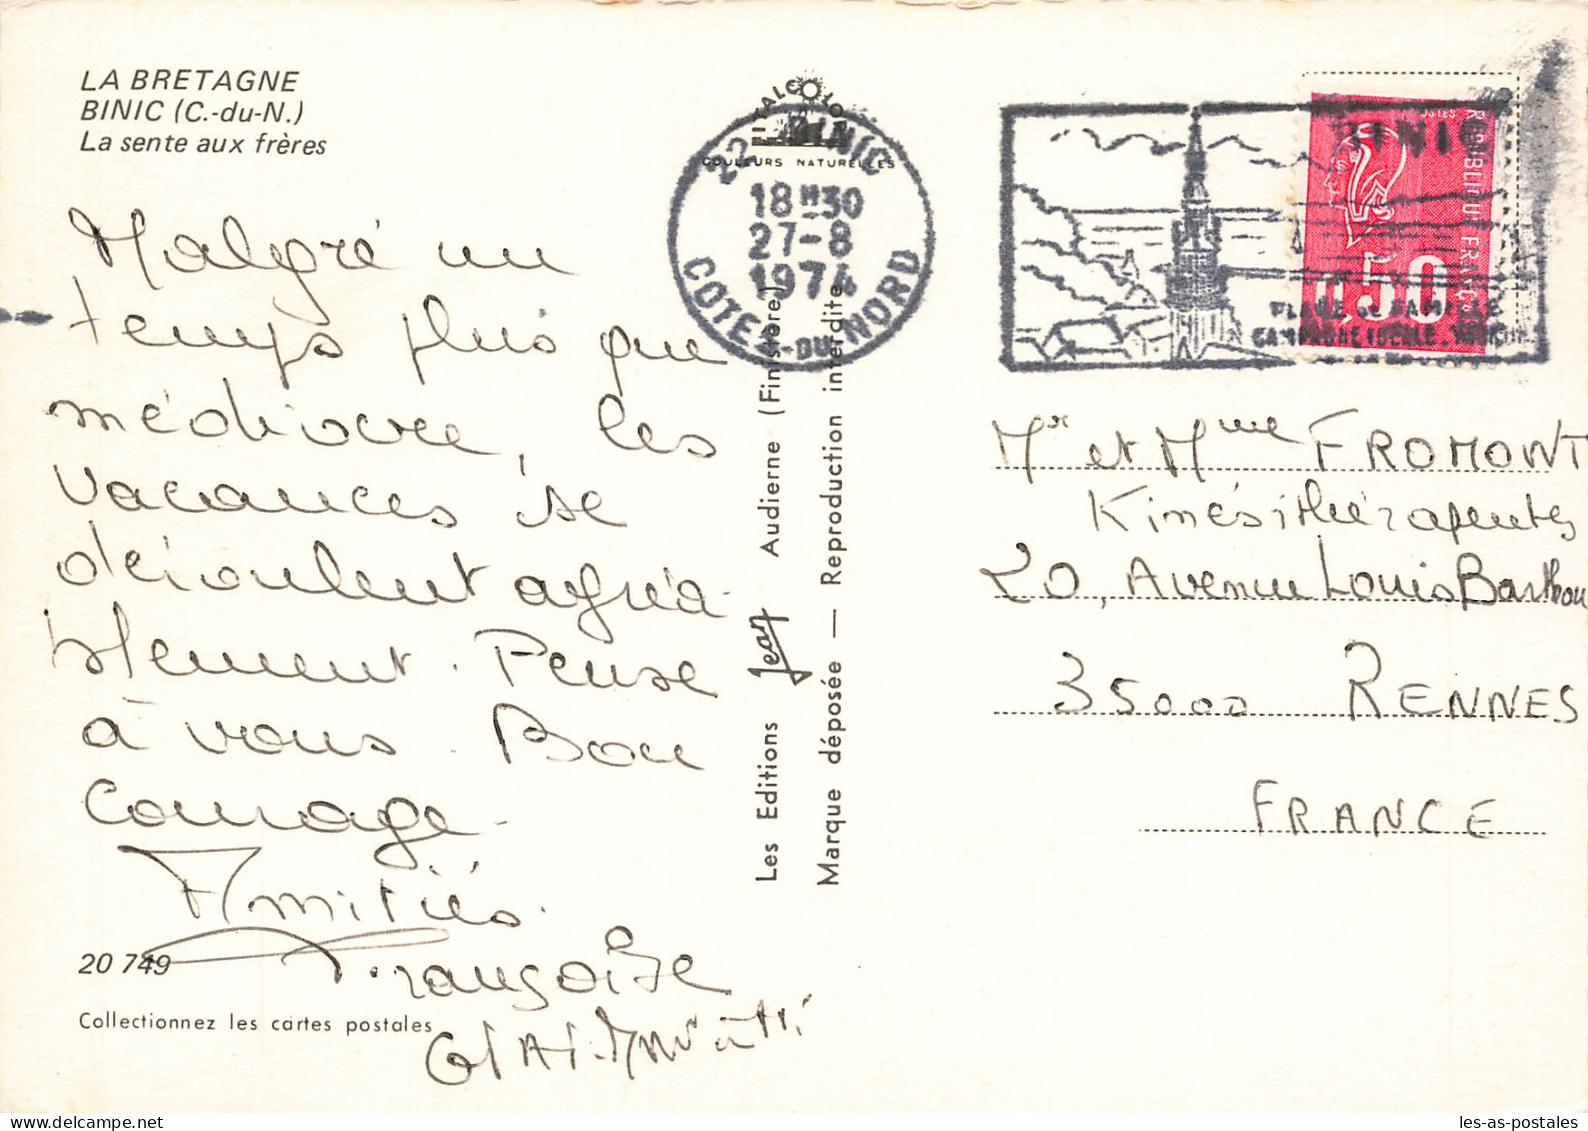 LA BRETAGNE
BINIC (C.-du-N.)
La sente aux frères
Malgré un
temps plus que
médiocre, les
vacances se
déroulent agréa-
blement. Pense
à vous. Bon
courage.
Amitiés.
Françoise
20 749
Collectionnez les cartes postales
Les Editions Jean Audierne (Finistère)
Marque déposée — Reproduction interdite
COULEURS NATURELLES
22 BINIC
18H30
27-8
1974
COTES-DU-NORD
BINIC
POSTES
REPUBLIQUE FRANÇAISE
0,50
Mr et Mme FROMONT
Kinésithérapeutes
20, Avenue Louis Barthou
35000 RENNES
FRANCE
les-as-postales